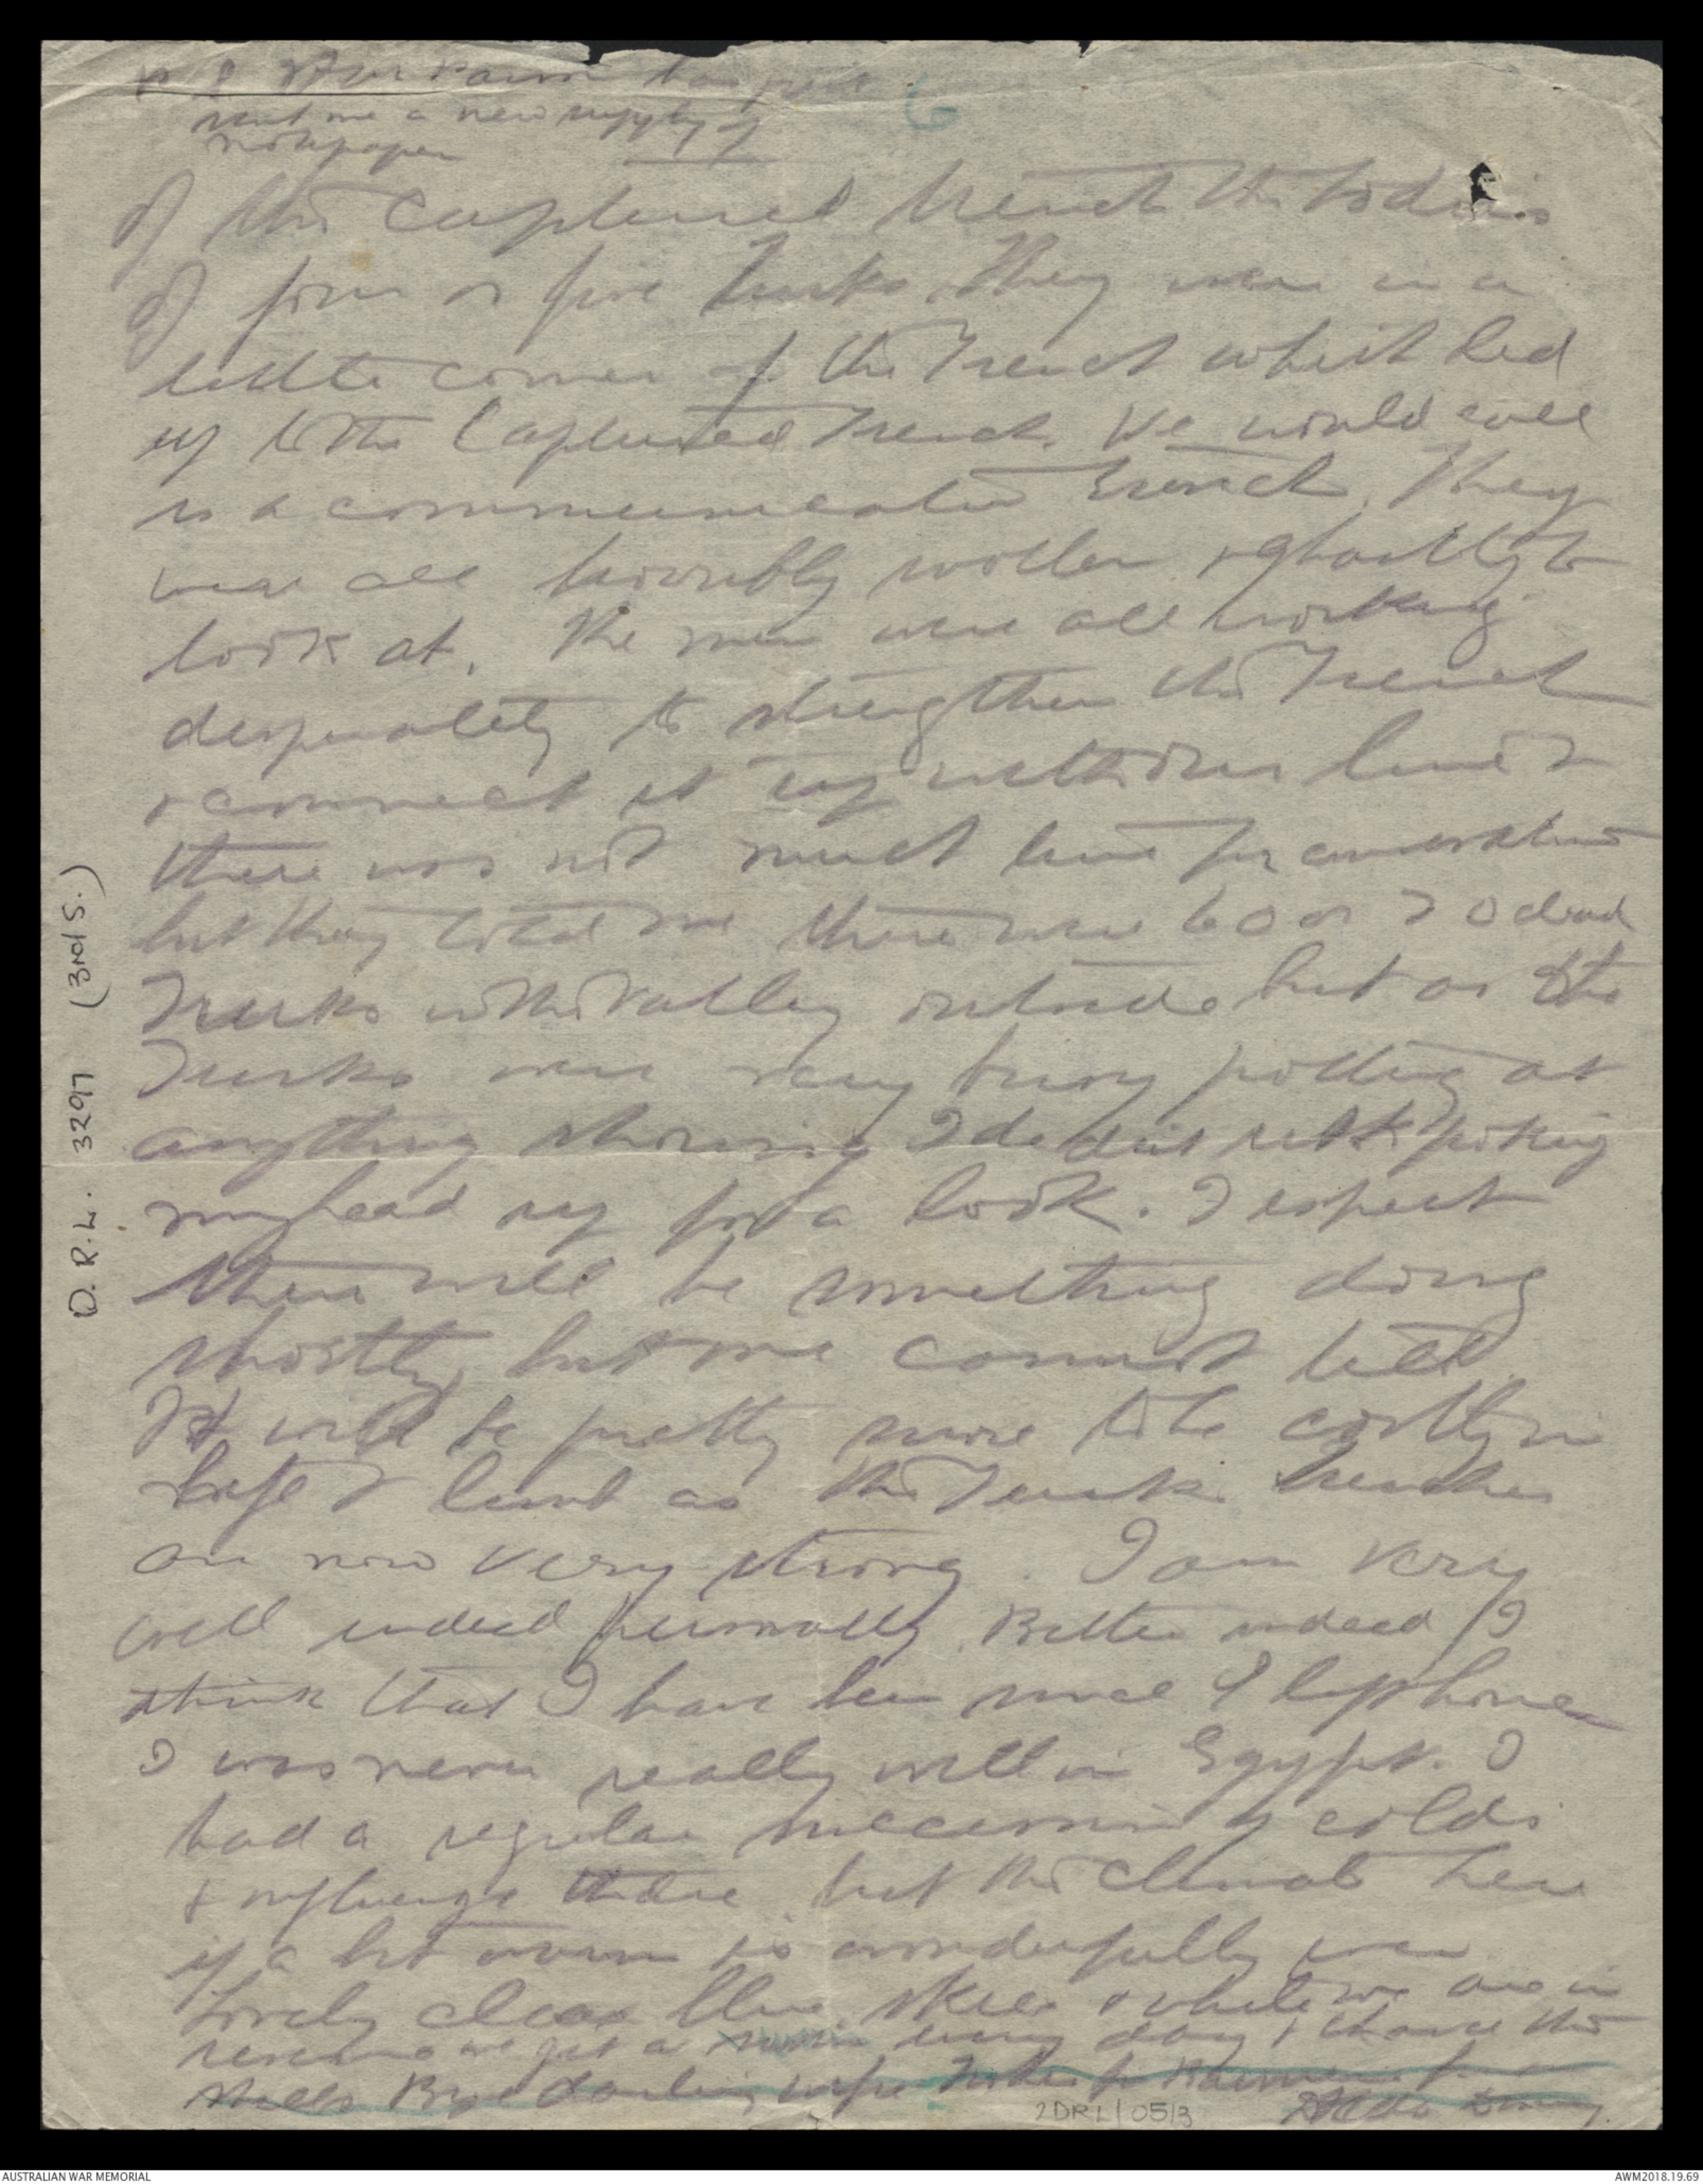 sent me a new supply of
notepaper
6
of the captured trench the bodies
of four or five Turks. They were in a
little corner of the Trench which led
up to the Captured Trench. We would call
it a communication trench. They
were all horribly swollen & ghastly to
look at. The men were all working
desperately to strengthen the Trench
& connect it up with our lines &
there was not much time for conversation
but they told me there were 60 or 70 dead
Turks in the valley outside but as the
Turks were very busy potting at
anything showing I didnt risk poking
my head up for a look. I expect
there will be something doing
shortly, but one cannot tell.
It will be pretty sure to be costly in
life & limb as the Turkis trenches
are now very strong. I am very
well indeed personally. Better indeed I
think that I have been since I left home
I was never really well in Egypt. I
had a regular succession of colds
& influenza there but the climate here
if a bit warm is wonderfully
Lovely clear blue skies & while we are in
reserve we get a swim every day & chance the
shells Bye darling wife
D.R.L. 3297 (3rd S.)
2DRL/0513
AUSTRALIAN WAR MEMORIAL
AWM2018.19.69